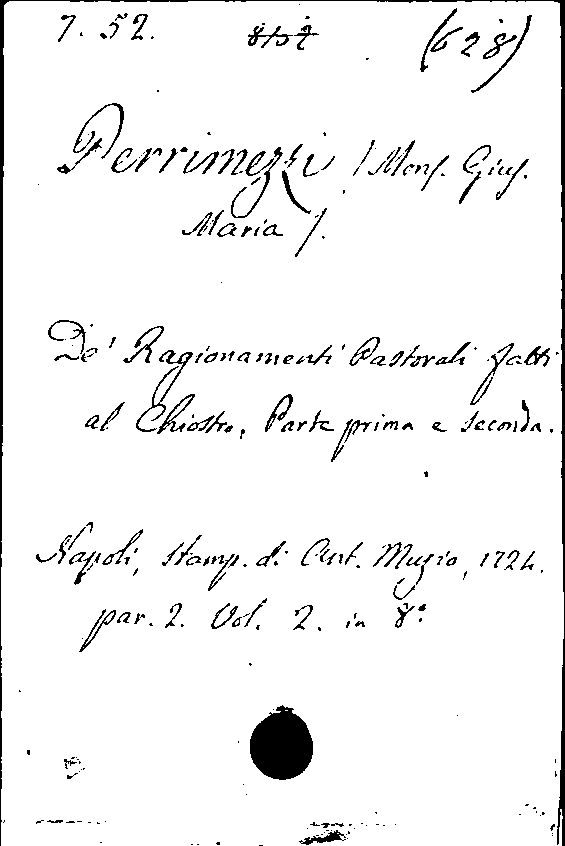 7. 52. (628)
Perrimezzi / Mons. Gius.
Maria /.
De' Ragionamenti Pastorali fatti
al Chiostro, Parte prima e seconda.
Napoli, Stamp. di Ant. Muzio, 1724.
par. 2. Vol. 2. in 8°